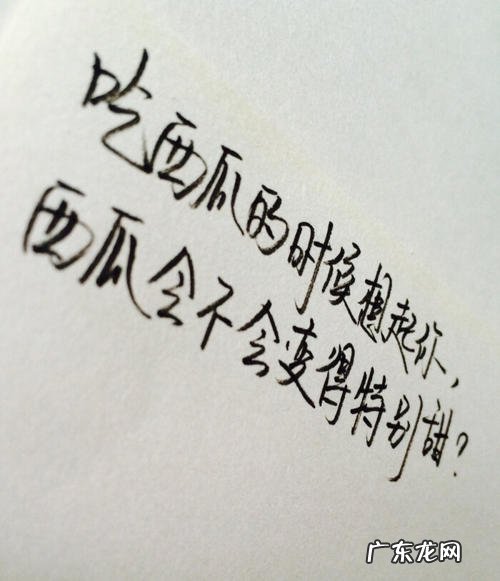 吃西瓜的时候想起你，
西瓜会不会变得特别甜？
广东龙网